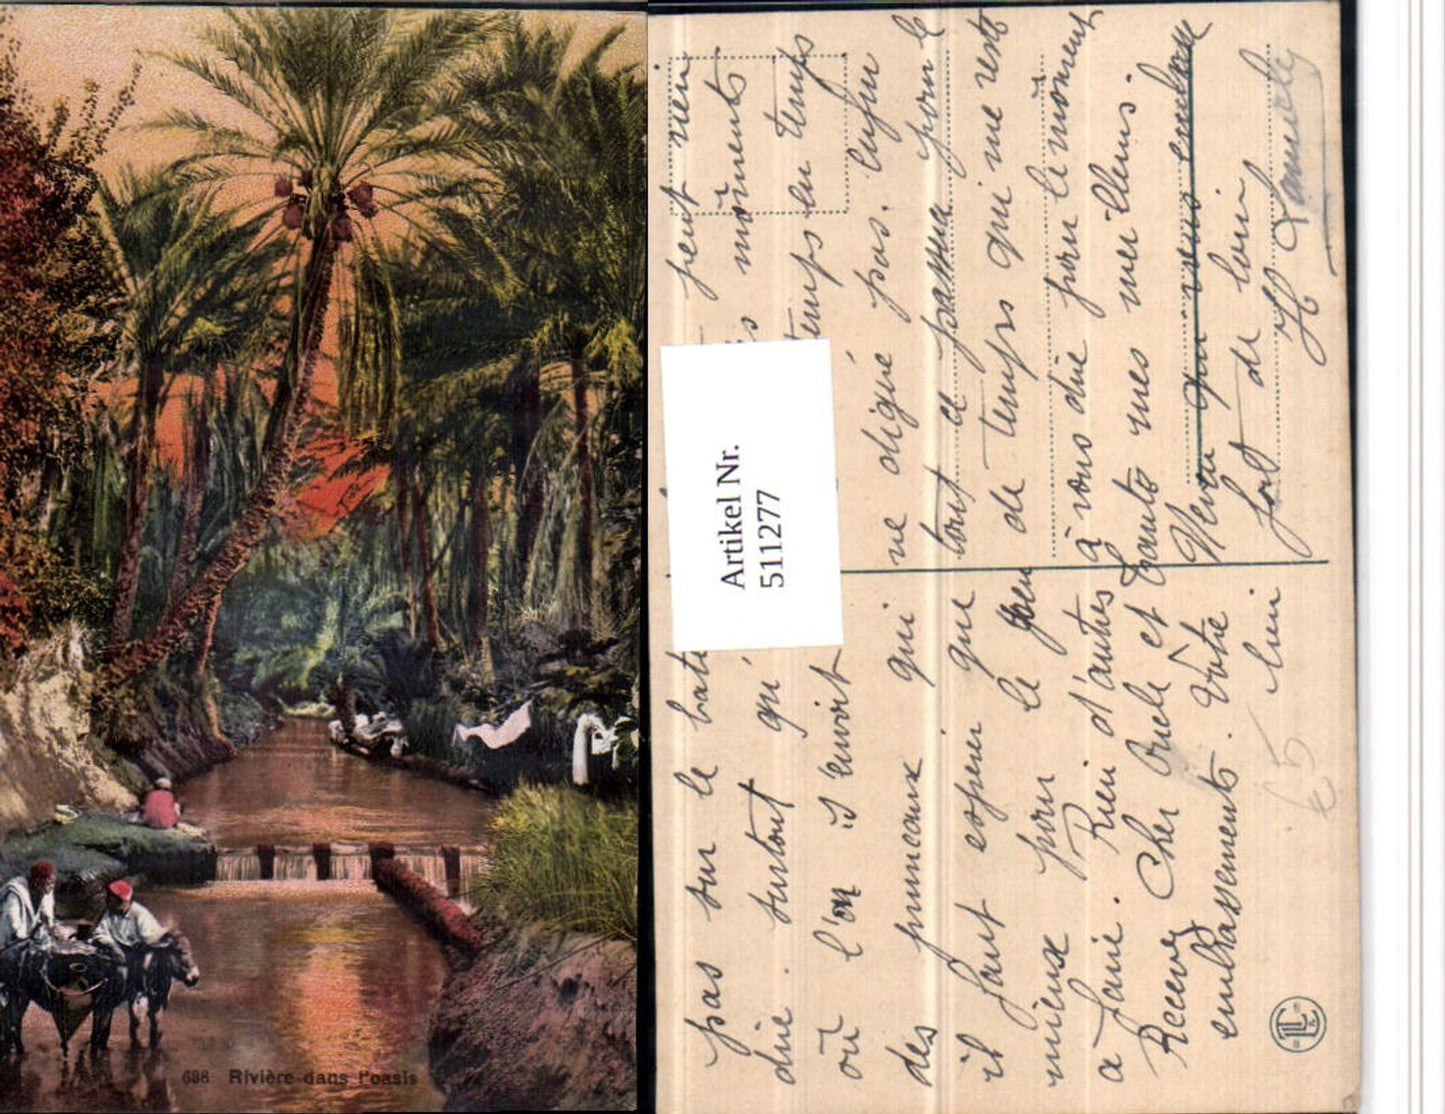 688 Rivière dans l'oasis
Artikel Nr.
511277
pas sur le peut rien
dire. surtout qu' moments
où l'on s'ennuit temps en temps
des pruneaux qui ne digué pas. Enfin
il faut esperer que tout ce passera pour le
mieux pour le peu de temps qui me reste
a faire. Rien d'autres à vous dire pour le moment
Recevez Cher Oncle et Tante mes meilleurs
embrassements. Votre Neveu qui vous
fort de loin